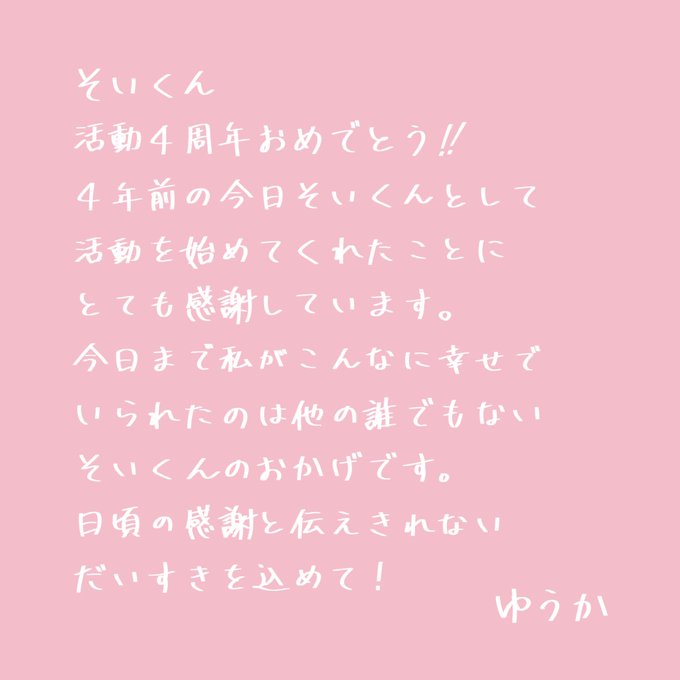 そいくん
活動4周年おめでとう!!
4年前の今日そいくんとして
活動を始めてくれたことに
とても感謝しています。
今日まで私がこんなに幸せで
いられたのは他の誰でもない
そいくんのおかげです。
日頃の感謝と伝えきれない
だいすきを込めて!
ゆうか